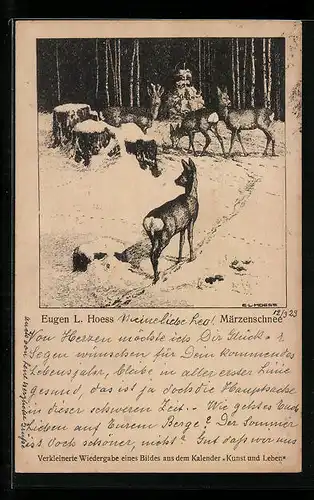 E·L·HOESS
Eugen L. Hoess Märzenschnee
Meine liebe 12/3 23
Von Herzen möchte ich Dir Glück- &
Segen wünschen für Dein kommendes
Lebensjahr, bleibe in aller erster Linie
gesund, das ist ja doch die Hauptsache
in dieser schweren Zeit. - Wie geht es Euch
Lieben auf Eurem Berge? Der Sommer
ist doch schöner, nicht? Gut daß wir uns
Verkleinerte Wiedergabe eines Bildes aus dem Kalender „Kunst und Leben"